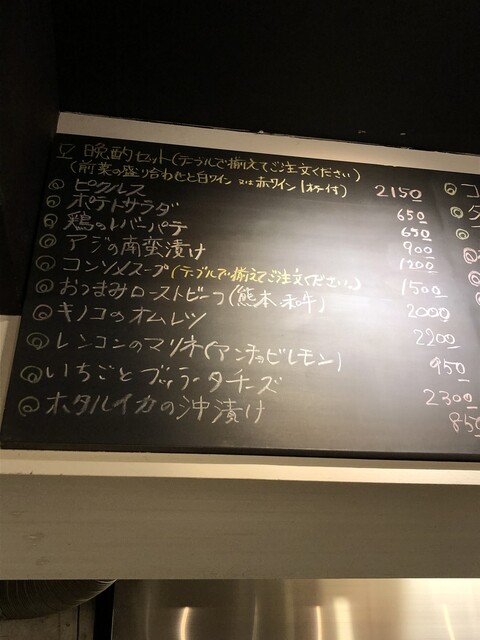 晩酌セット(テーブルで揃えてご注文ください)
(前菜の盛り合わせと白ワイン又は赤ワイン1杯付) 2150
◎ピクルス 650
◎ポテトサラダ 650
◎鶏のレバーパテ 900
◎アジの南蛮漬け 1200
◎コンソメスープ(テーブルで揃えてご注文ください。) 1500
◎おつまみローストビーフ(熊本、和牛) 2000
◎キノコのオムレツ 2200
◎レンコンのマリネ(アンチョビレモン) 950
◎いちごとブッラータチーズ 2300
◎ホタルイカの沖漬け 850